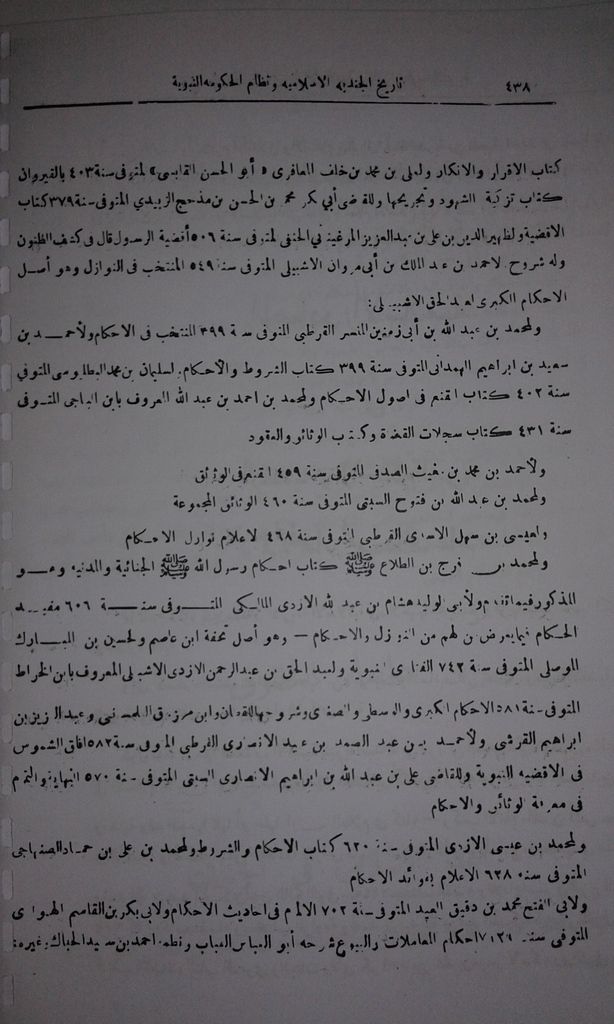 ٤٣٨ تاريخ الجندية الاسلاميه ونظام الحكومه النبوية
كتاب الاقرار والانكار ولعلي بن محمد بن خلف المعافري « أبو الحسن القابسي » المتوفى سنة ٤٠٣ بالقيروان
كتاب تزكية الشهود وتجريحها وللقاضي أبي بكر محمد بن الحسن بن مذحج الزبيدي المتوفى سنة ٣٧٩ كتاب
الاقضية ولظهير الدين بن علي بن عبد العزيز المرغيناني الحنفي المتوفى سنة ٥٠٦ أقضية الرسول قال في كشف الظنون
وله شروح لاحمد بن عبد الملك بن أبي مروان الاشبيلي المتوفى سنة ٥٤٩ المنتخب في النوازل وهو أصل
الاحكام الكبرى لعبد الحق الاشبيلي:
ولمحمد بن عبد الله بن أبي زمنين المفسر القرطبي المتوفى سنة ٣٩٩ المنتخب في الاحكام ولأحمد بن
سعيد بن ابراهيم الهمداني المتوفى سنة ٣٩٩ كتاب الشروط والأحكام. لسليمان بن محمد البطليوسي المتوفي
سنة ٤٠٢ كتاب المقنع في اصول الاحكام ولمحمد بن احمد بن عبد الله المعروف بابن الباجي المتوفى
سنة ٤٣١ كتاب سجلات القضاة وكتب الوثائق والعقود
ولأحمد بن محمد بن مغيث الصدفي المتوفى سنة ٤٥٩ المقنع في الوثائق
ولمحمد بن عبد الله بن فتوح السبتي المتوفى سنة ٤٦٠ الوثائق المجموعة
ولعيسى بن سهل الاسدي القرطبي المتوفى سنة ٤٦٨ لاعلام نوازل الاحكام
ولمحمد بن فرج بن الطلاع ﷺ كتاب احكام رسول الله ﷺ الجنائية والمدنية وهو
المذكور فيما تقدم ولأبي الوليد هشام بن عبد الله الازدي المالكي المتوفى سنة ٦٠٦ مفيد
الحكام فيما يعرض لهم من النوازل والاحكام – وهو أصل تحفة ابن عاصم ولحسين بن المبارك
الموصلي المتوفى سنة ٧٤٢ الفتاوى النبوية ولعبد الحق بن عبد الرحمن الازدي الاشبيلي المعروف بابن الخراط
المتوفى سنة ٥٨١ الاحكام الكبرى والوسطى والصغرى وشروحها للقدمان وابن مرزوق التلمساني وعبد العزيز بن
ابراهيم القرشي ولأحمد بن عبد الصمد بن عبيد الانصاري القرطبي المتوفى سنة ٥٨٢ افاق الشموس
في الاقضيه النبوية وللقاضي علي بن عبد الله بن ابراهيم الانصاري السبتي المتوفى سنة ٥٧٠ النهاية والتمام
في معرفة الوثائق والاحكام
ولمحمد بن عيسى الازدي المتوفى سنة ٦٢٠ كتاب الاحكام والشروط ولمحمد بن علي بن حماد الصنهاجي
المتوفى سنة ٦٢٨ الاعلام بفوائد الاحكام
ولابي الفتح محمد بن دقيق العيد المتوفى سنة ٧٠٢ الالمام في احاديث الاحكام ولابي بكر بن القاسم الهواري
المتوفى سنة احكام المعاملات والبيوع شرحه أبو العباس القباب ونظمه احمد بن سعيد الحباك وغيره: